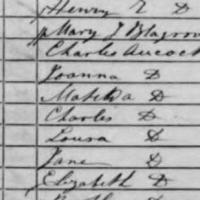 Henry E D
Mary J Blagrow
Charles Aucock
Joanna D
Matilda D
Charles D
Loura D
Jane D
Elizabeth D